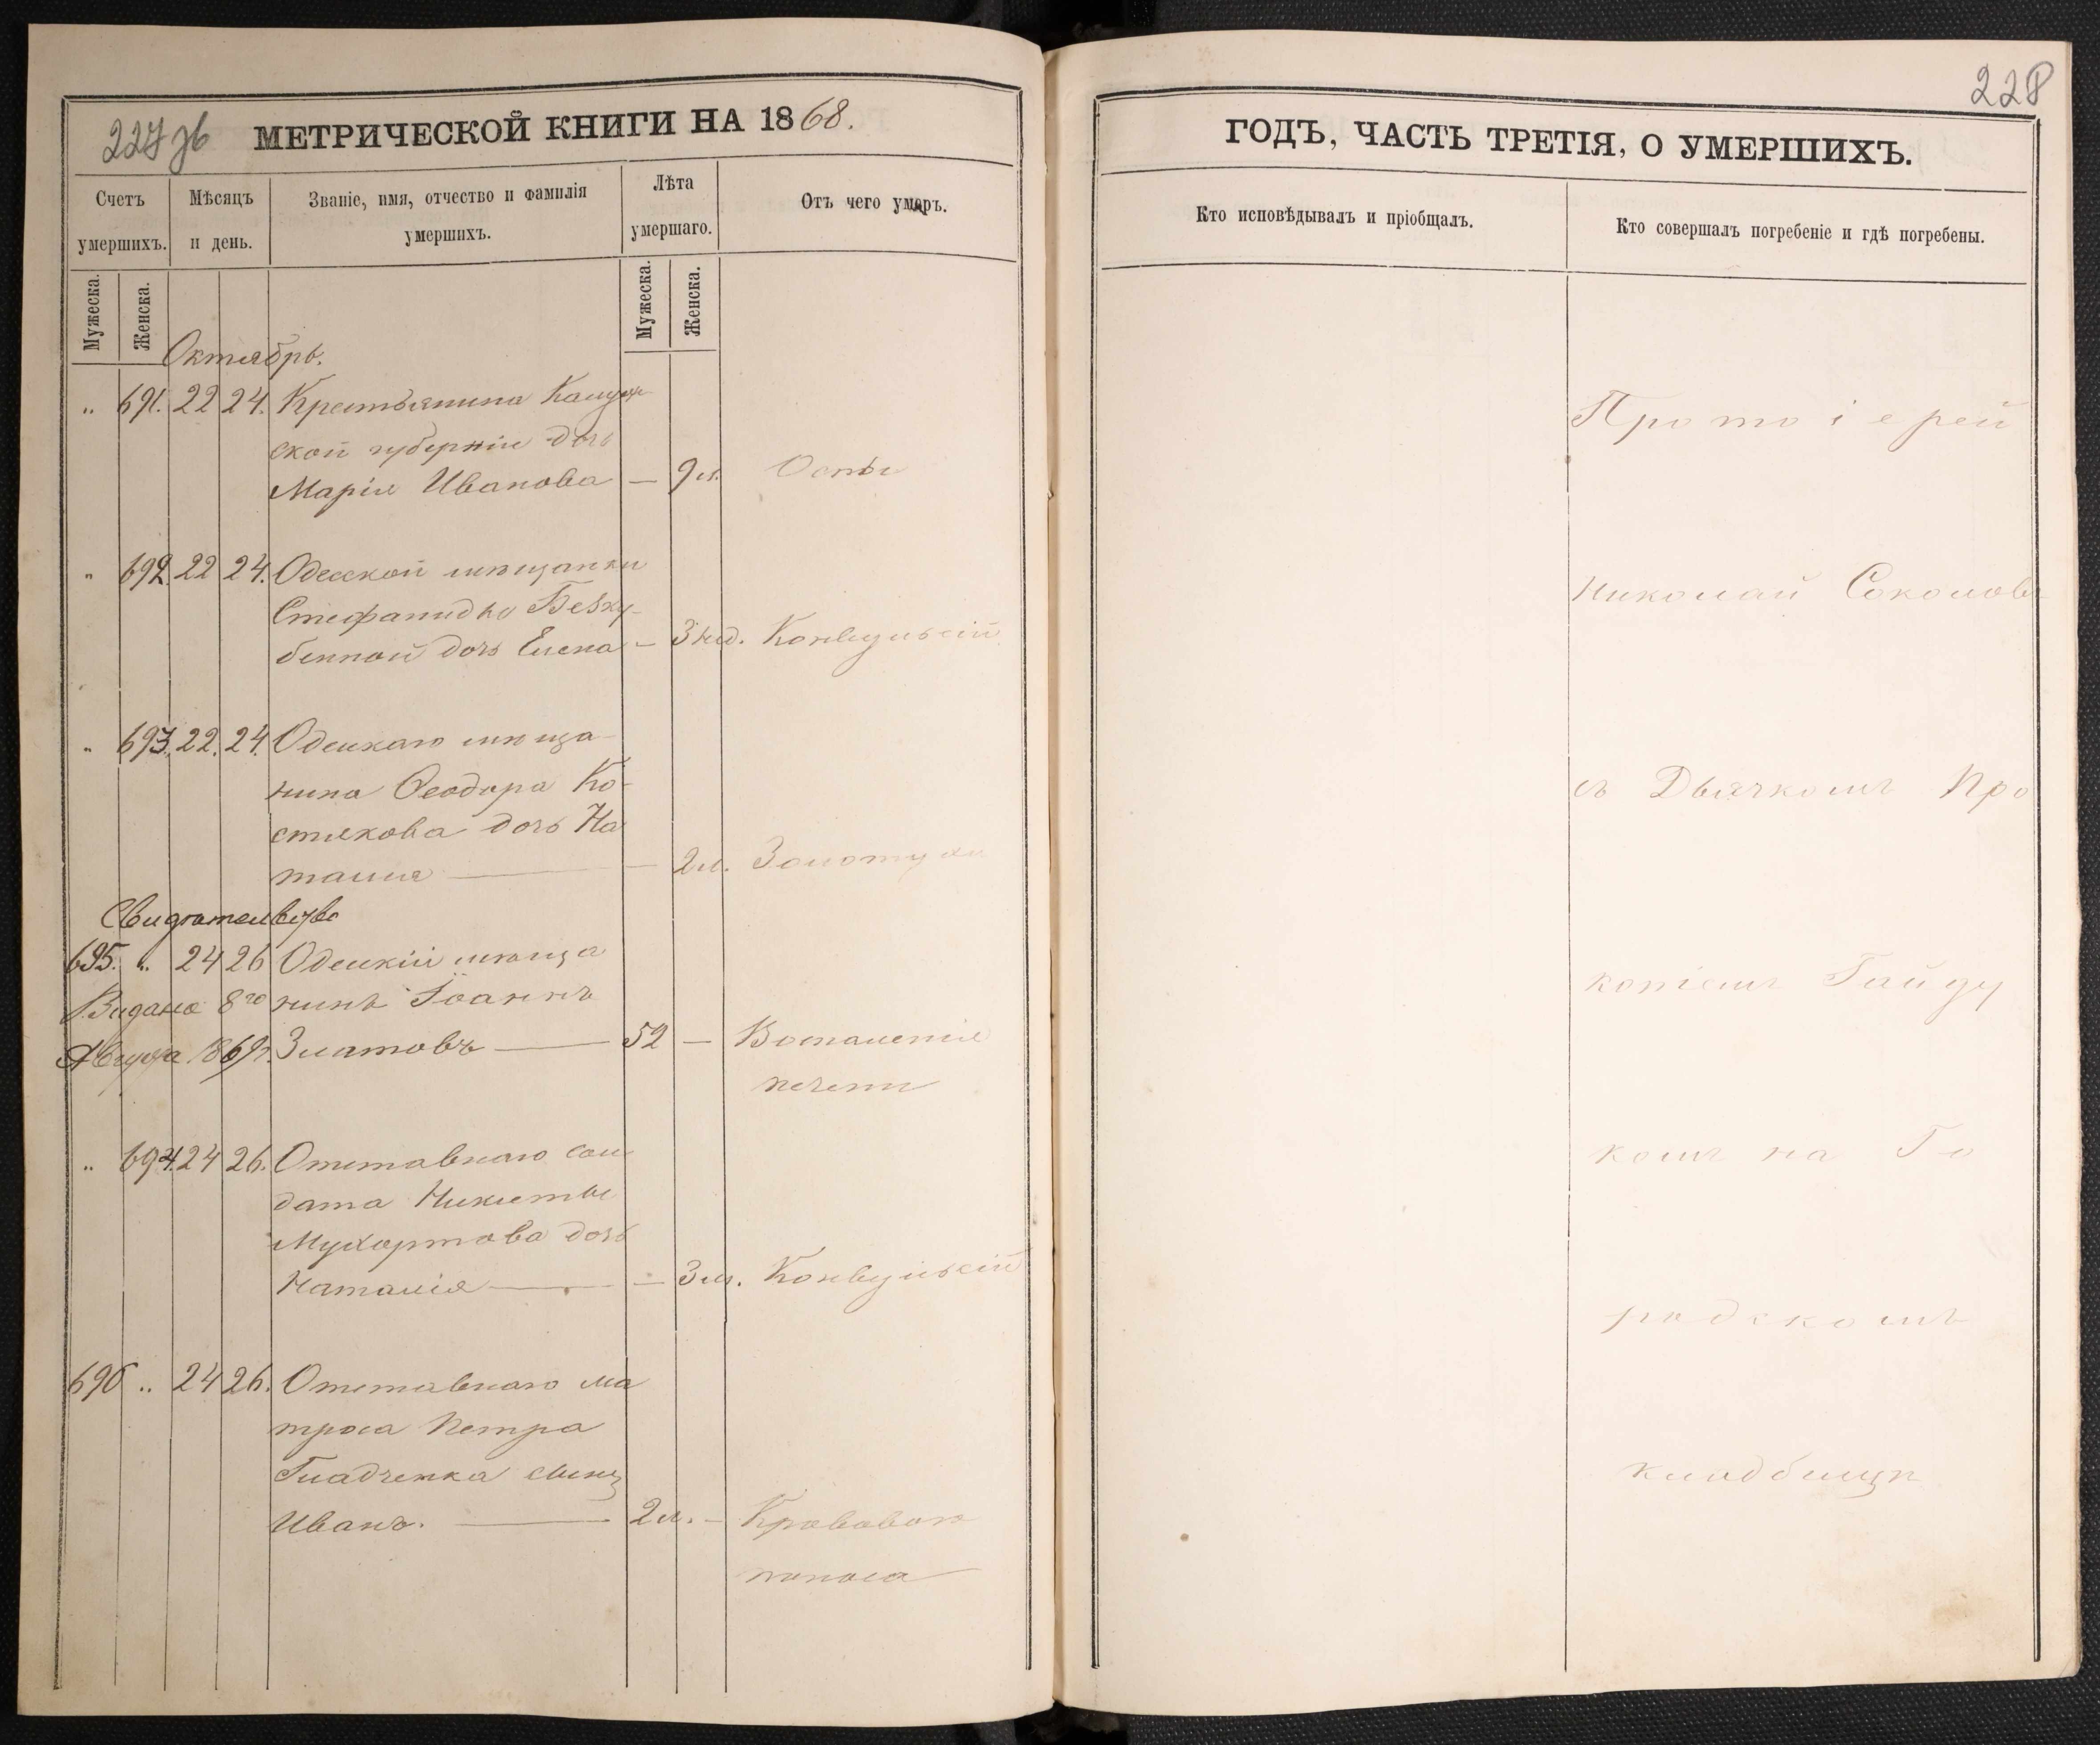 227 зв
МЕТРИЧЕСКОЙ КНИГИ НА 1868.
Счетъ умершихъ.
Мѣсяцъ и день.
Званіе, имя, отчество и фамилія умершихъ.
Лѣта умершаго.
Отъ чего умеръ.
Мужеска.
Женска.
Мужеска.
Женска.
Октябрь.
" 691. 22 24. Крестьянина Калуж
ской губерніи дочь
Марія Иванова — 9 м. Оспы
" 692. 22 24. Одесской мѣщанки
Стефаниды Безху-
бенной дочь Елена — 3 нед. Конвульсій
" 693. 22. 24. Одескаго мѣща
нина Ѳеодора Ко-
стякова дочь На
талія — 2 м. Золотухи
Свидѣтельство
695. " 24 26 Одескій мѣща
Видано 8го нинъ Іоаннъ
Августа 1869 г. Златовъ 52 — Воспаленія
печени
" 694. 24 26. Отставнаго сол
дата Никиты
Мухортова дочь
Наталія — 3 м. Конвульсій
696 " 24 26. Отставнаго ма
троса Петра
Гладченка сынъ
Иванъ. 2 м. — Кроваваго
поноса
228
ГОДЪ, ЧАСТЬ ТРЕТІЯ, О УМЕРШИХЪ.
Кто исповѣдывалъ и пріобщалъ.
Кто совершалъ погребеніе и гдѣ погребены.
Протоіерей
Николай Соколовъ
съ Дьячкомъ Про
копіемъ Гайду
комъ на Го
родскомъ
кладбищѣ